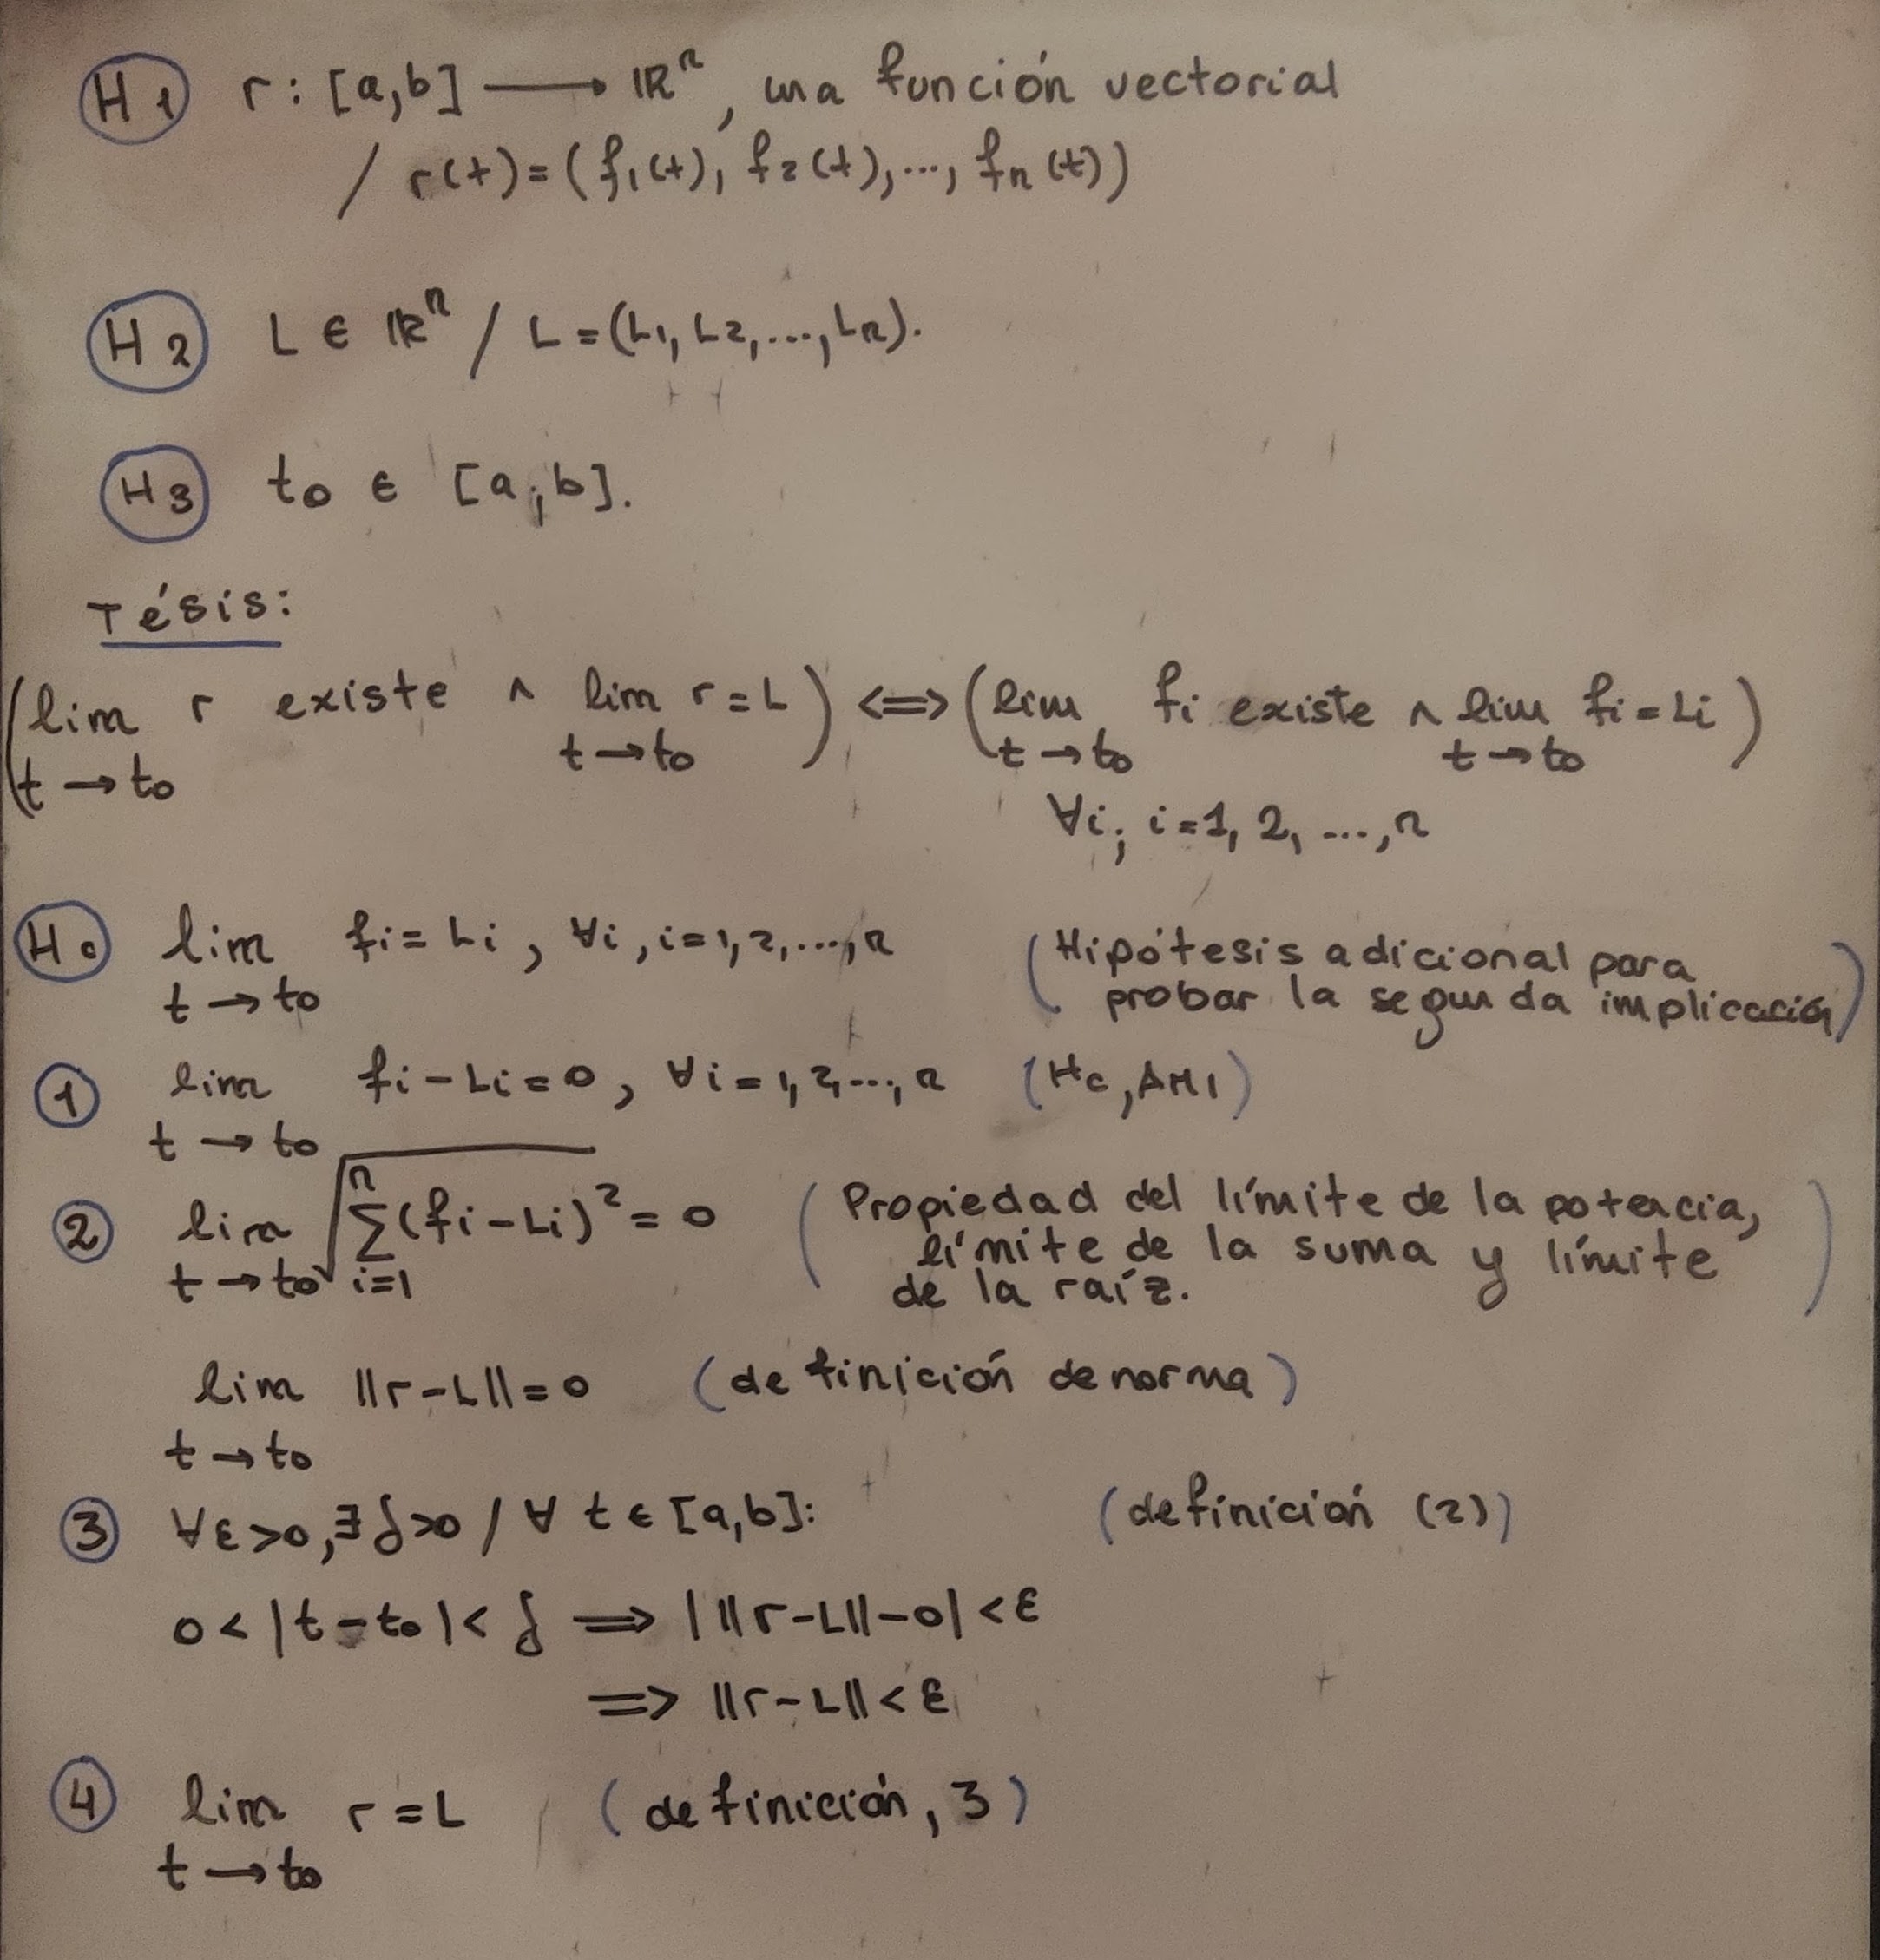 H1 r: [a,b] ⟶ ℝⁿ, una función vectorial
/ r(t)=(f₁(t), f₂(t),..., fn(t))
H2 L ∈ ℝⁿ / L=(L1, L2,...,Ln).
H3 t₀ ∈ [a;b].
Tésis:
(lim r existe ∧ lim r=L) ⟺ (lim fi existe ∧ lim fi=Li)
t→t₀ t→t₀ t→t₀ t→t₀
∀i; i=1, 2, ...,n
H0 lim fi=Li, ∀i, i=1,2,...,n (Hipótesis adicional para
t→t₀ probar la segunda implicación)
1 lim fi-Li=0, ∀i=1,2,...,n (Hc, AM1)
t→t₀
2 lim √∑(fi-Li)²=0 (Propiedad del límite de la potencia,
n límite de la suma y límite
t→t₀ i=1 de la raíz.)
lim ||r-L||=0 (definición de norma)
t→t₀
3 ∀ε>0,∃δ>0 / ∀ t∈[a,b]: (definición (2))
0<|t-t₀|<δ ⟹ | ||r-L||-0|<ε
⟹ ||r-L||<ε
4 lim r=L (definición, 3)
t→t₀